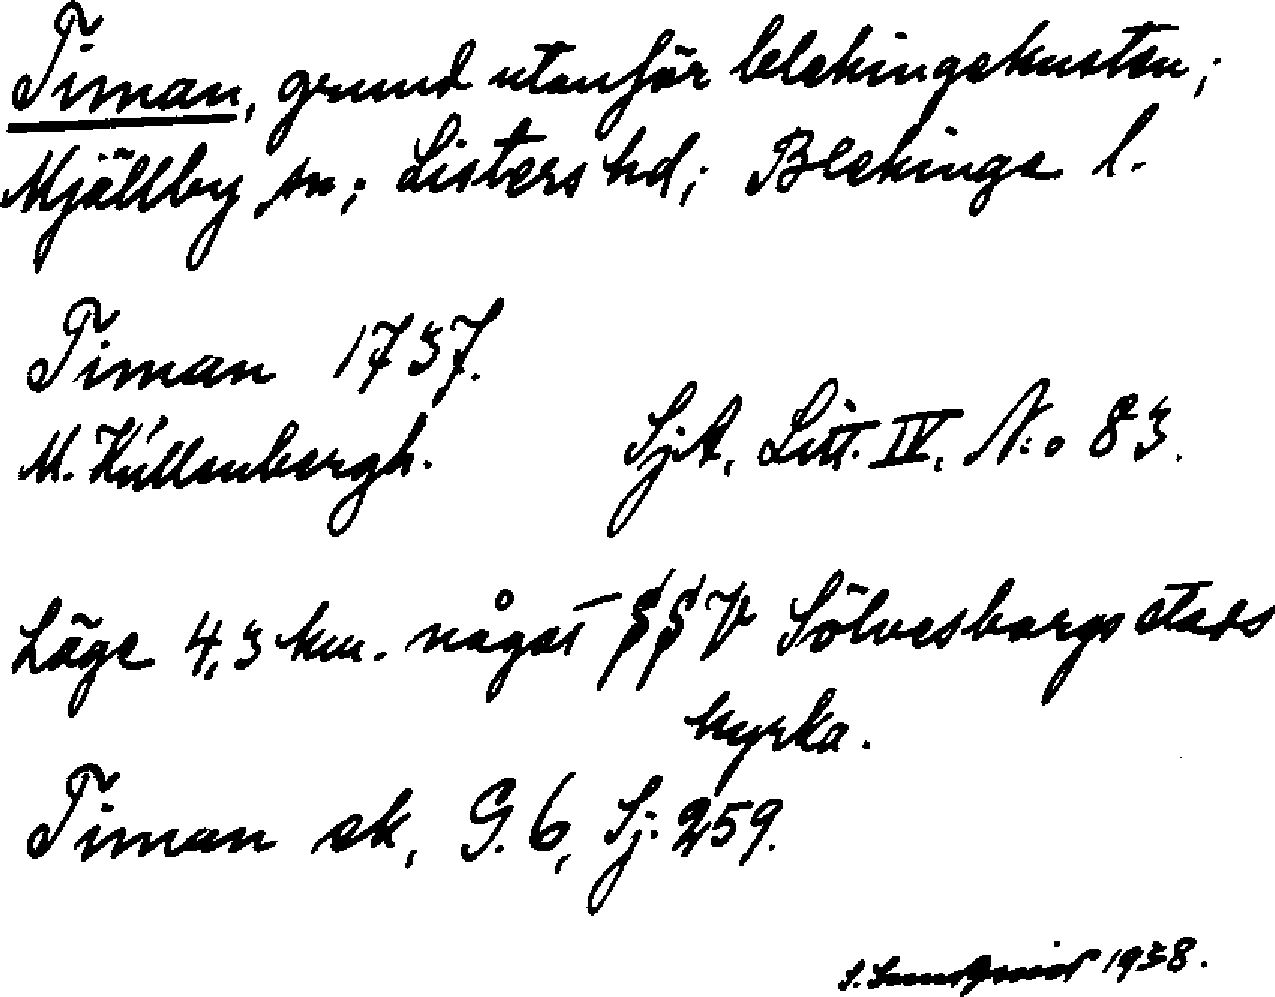 Timan, grund utanför blekingekusten;
Mjällby sn; Listers hd; Blekinge l.
Timan 1737.
M. Küllenbergh. Sj.A, Litt. IV, N:o 83.
Läge 4,3 km. något SSV Sölvesborgs stads
kyrka.
Timan ek, G. 6, Sj. 259.
S. 1938.